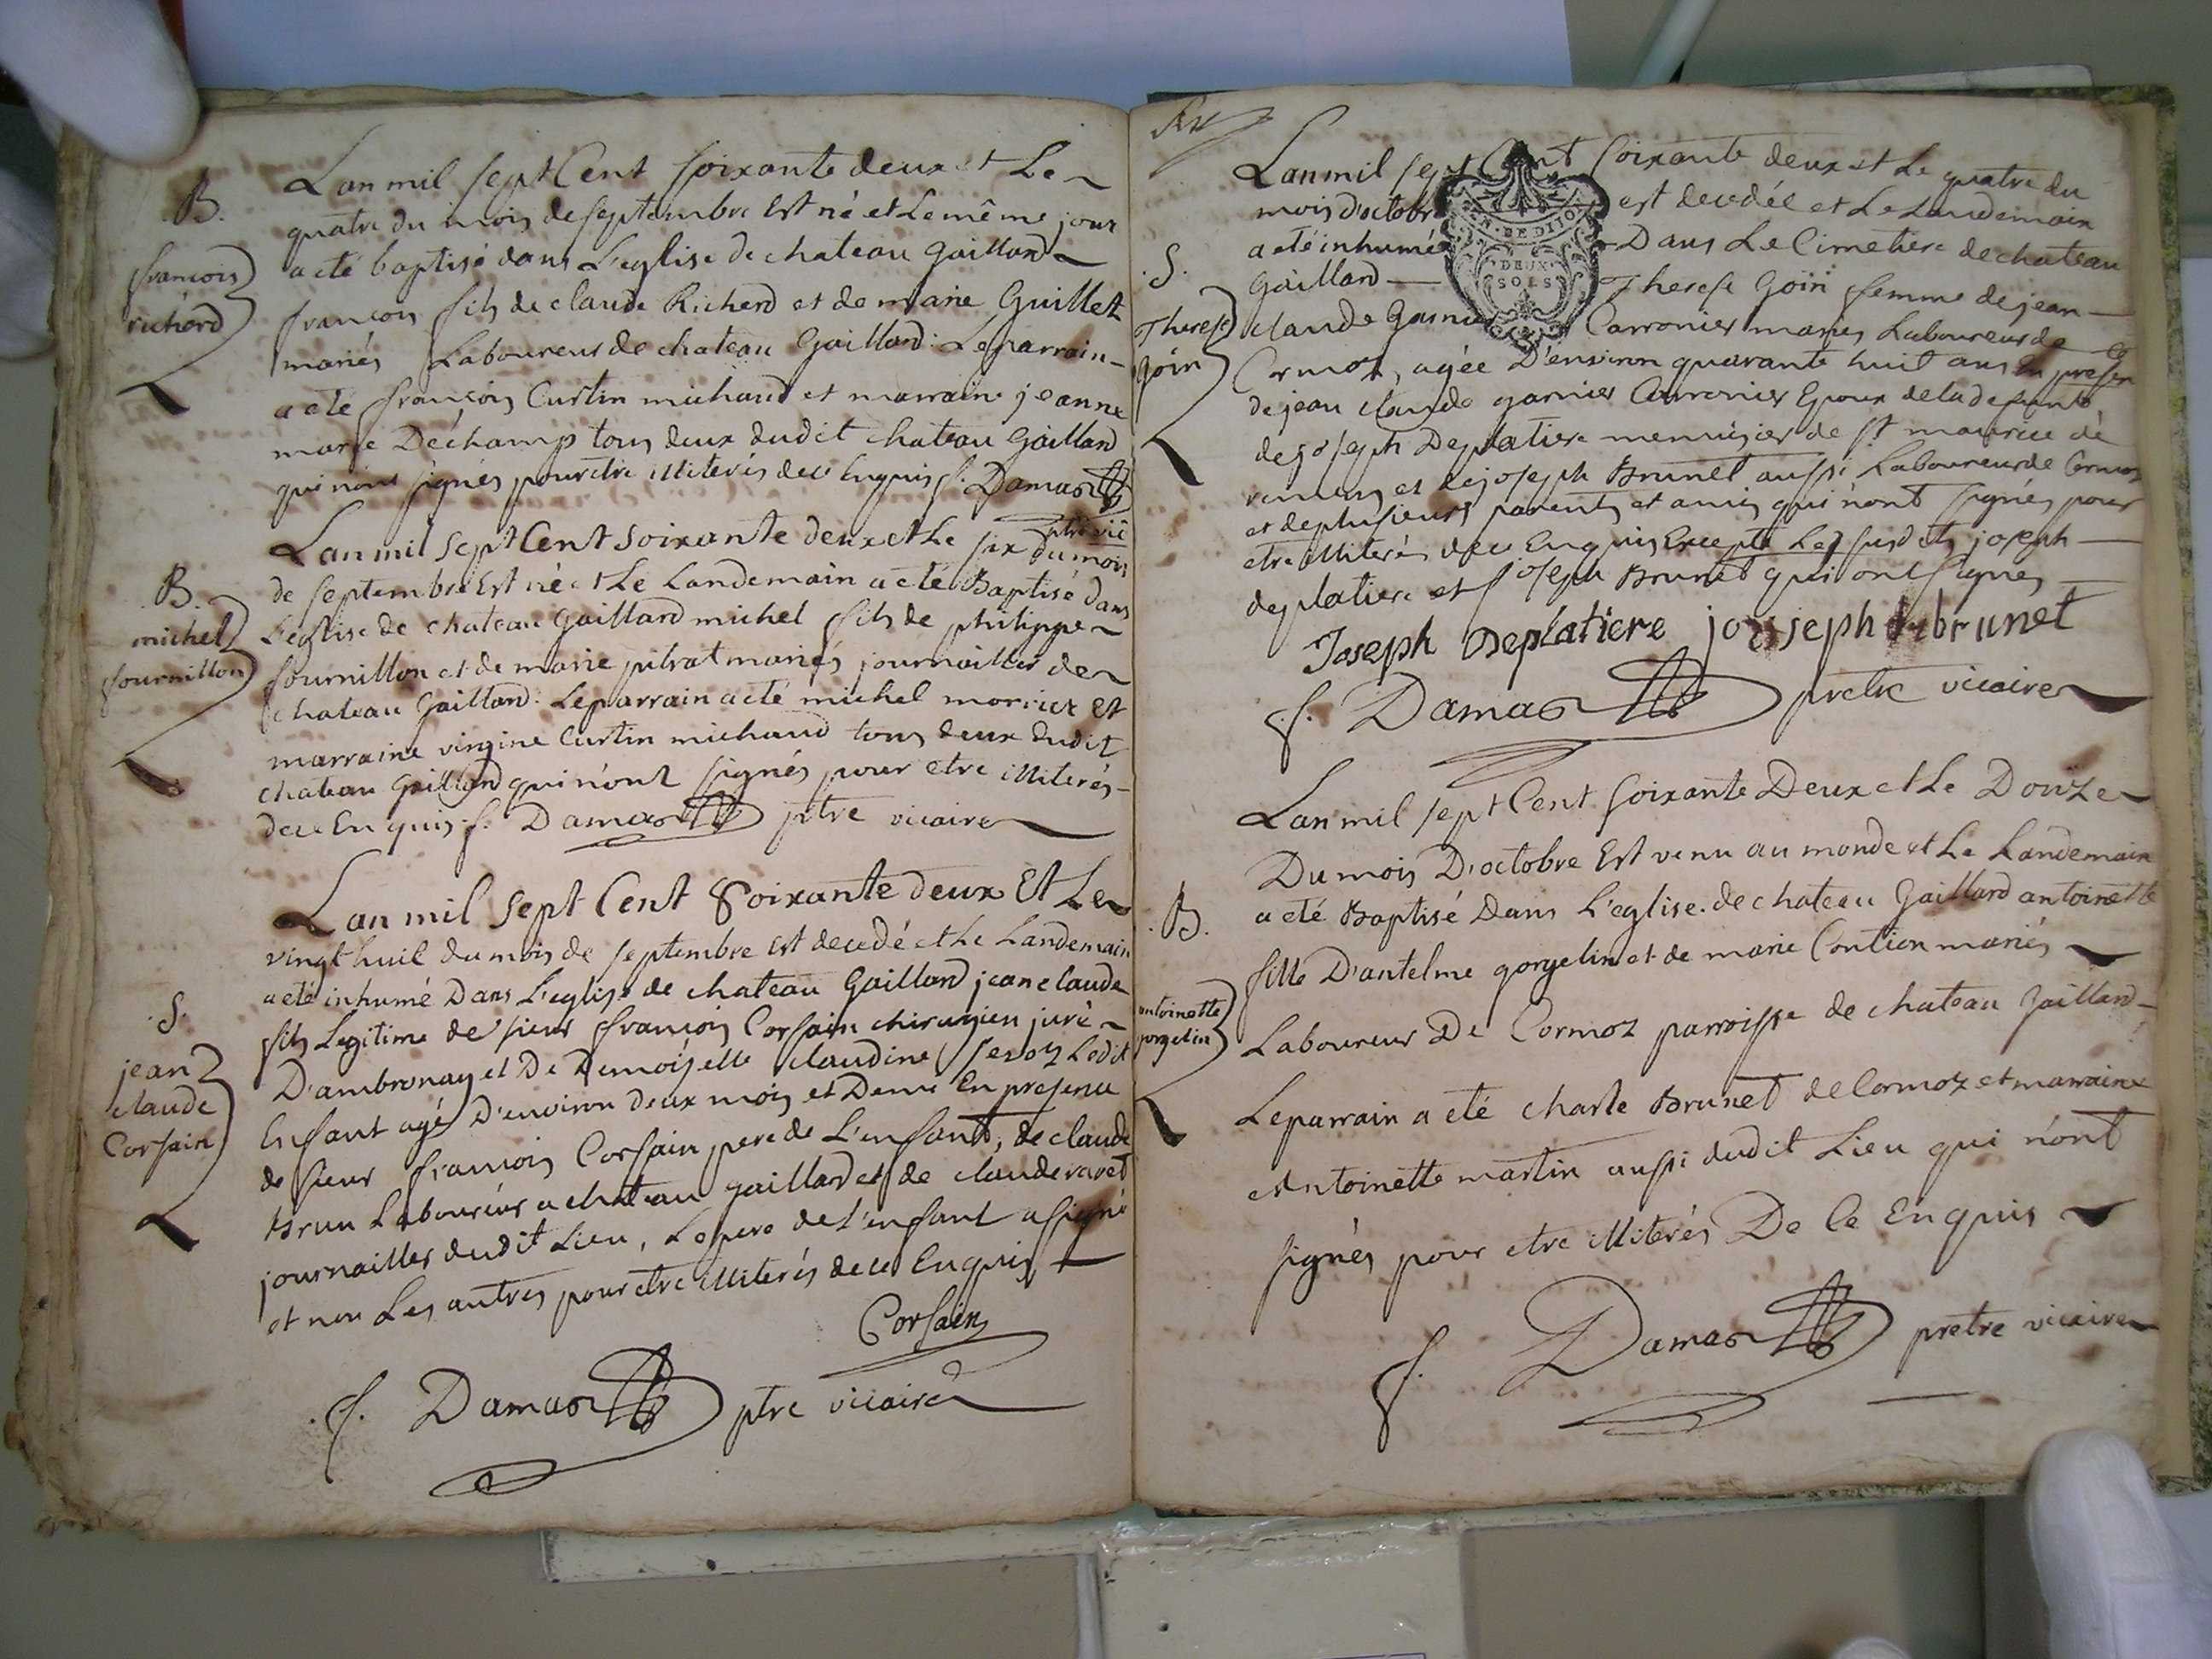 B.
françois
richard
Lan mil sept Cent soixante deux et Le
quatre du mois de septembre Est né et Le même jour
a eté baptisé dans L'eglise de chateau Gaillard
françois fils de claude Richerd et de marie Guillet
mariés Laboureurs de chateau Gaillard. Le parrain
a eté françois Curtin michaud et marraine jeanne
marie Déchamp tous deux dudit chateau Gaillard
qui n'ont signés pour etre illiterés de ce Enquis f. Damas
ptre vic
B.
michel
fournillon
Lan mil sept Cent soixante deux et Le six du mois
de septembre Est né et Le Landemain a eté Baptisé dans
L'eglise de chateau Gaillard michel fils de philippe
fournillon et de marie pilrat mariés journaillier de
chateau Gaillard. Le parrain a eté michel morrier et
marraine virgine Curtin michaud tous deux dudit
chateau Gaillard qui n'ont signés pour etre illiterés
de ce Enquis f. Damas ptre vicaire
S.
jean
claude
Corsain
Lan mil sept Cent Soixante deux Et Le
vingt huit du mois de septembre est decedé et Le Landemain
a eté inhumé Dans L'eglise de chateau Gaillard jean claude
fils Legitime de sieur françois Corsain chirurgien juré
D'ambronay et De Demoiselle claudine Ledit
Enfant agé D'environ deux mois et Demi En presence
de sieur françois Corsain pere de L'enfant, de claude
Brun Laboureur a chateau gaillard et de claude ravet
journaillier dudit Lieu, Le pere de L'enfant a signé
et non Les autres pour etre illiterés de ce Enquis
Corsain
f. Damas ptre vicaire
S.
Therese
Goin
Lan mil sept Cent soixante deux et Le quatre du
mois d'octobre est decedée et Le Landemain
a eté inhumé Dans Le Cimetiere de chateau
Gaillard Therese Goin femme de jean
claude Garnier Carronier mariés Laboureurs de
Cormoz, agée D'environ quarante huit ans En presence
de jean claude garnier Carronier Epoux de la defunte,
de joseph Deplatiere menuisier de st maurice de
remens et de joseph Brunet aussi Laboureur de Cormoz
et de plusieurs parents et amis qui n'ont signés pour
etre illiterés de ce Enquis Excepté Les susdits joseph
deplatiere et joseph Brunet qui ont signés
Joseph Deplatiere joseph brunet
f. Damas pretre vicaire
B.
antoinette
gorgelin
Lan mil sept Cent soixante Deux et Le Douze
Du mois D'octobre Est venu au monde et Le Landemain
a eté Baptisé Dans L'eglise de chateau Gaillard antoinette
fille D'antelme gorgelin et de marie Contion mariés
Laboureur De Cormoz parroisse de chateau Gaillard
Le parrain a eté charle Brunet de Cormoz et marraine
Antoinette martin aussi dudit Lieu qui n'ont
signés pour etre illiterés De Ce Enquis
f. Damas pretre vicaire
DEUX
SOLS